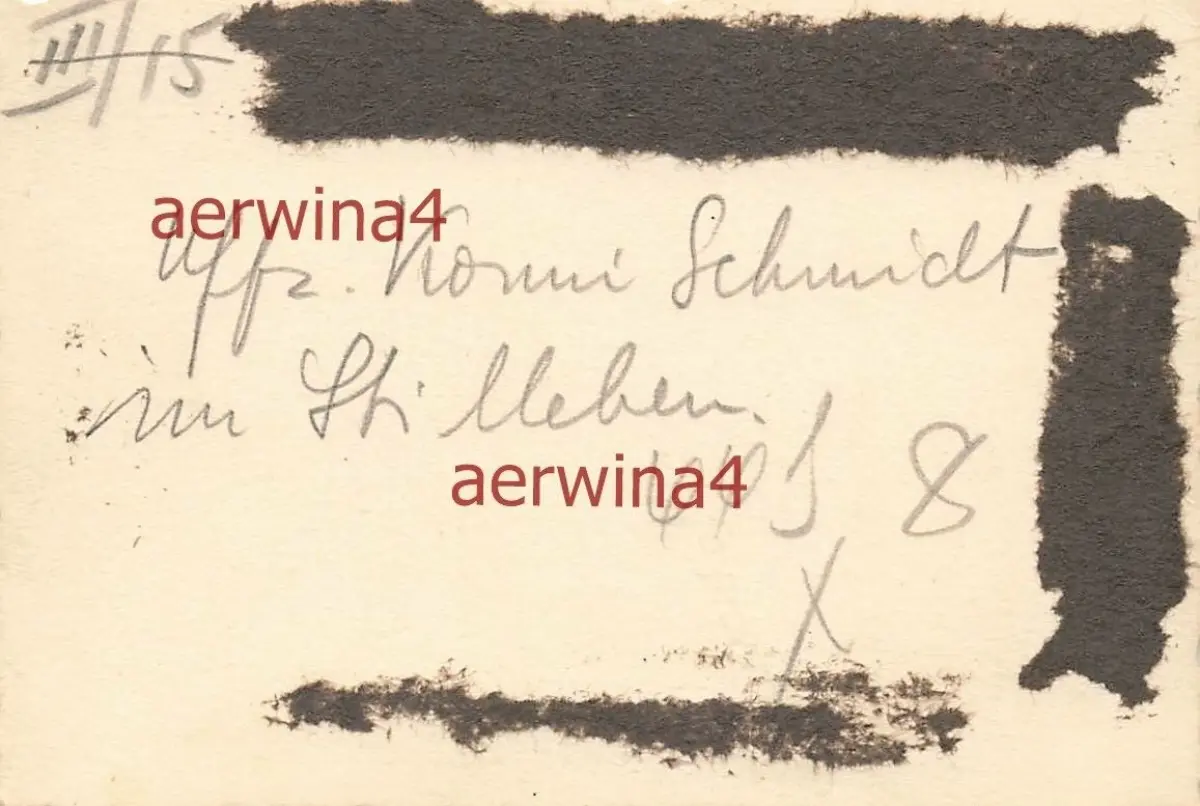 III/15
aerwina4
Uffz. Konni Schmidt
im Stilleben.
aerwina4
8
X